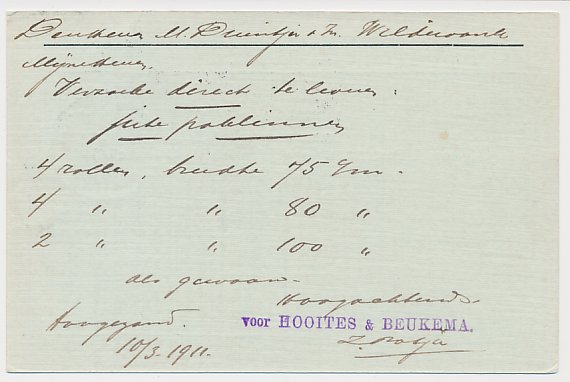 Den Heeren M. Duintjer & Zn. Wildervank
Mijne Heeren,
Verzoeke direct te leveren:
jute paklinnen
4 rollen, breedte 75 c/m.
4 " " 80 "
2 " " 100 "
als gewoon.
Hoogachtend
Hoogezand. voor HOOITES & BEUKEMA.
10/3. 1911.